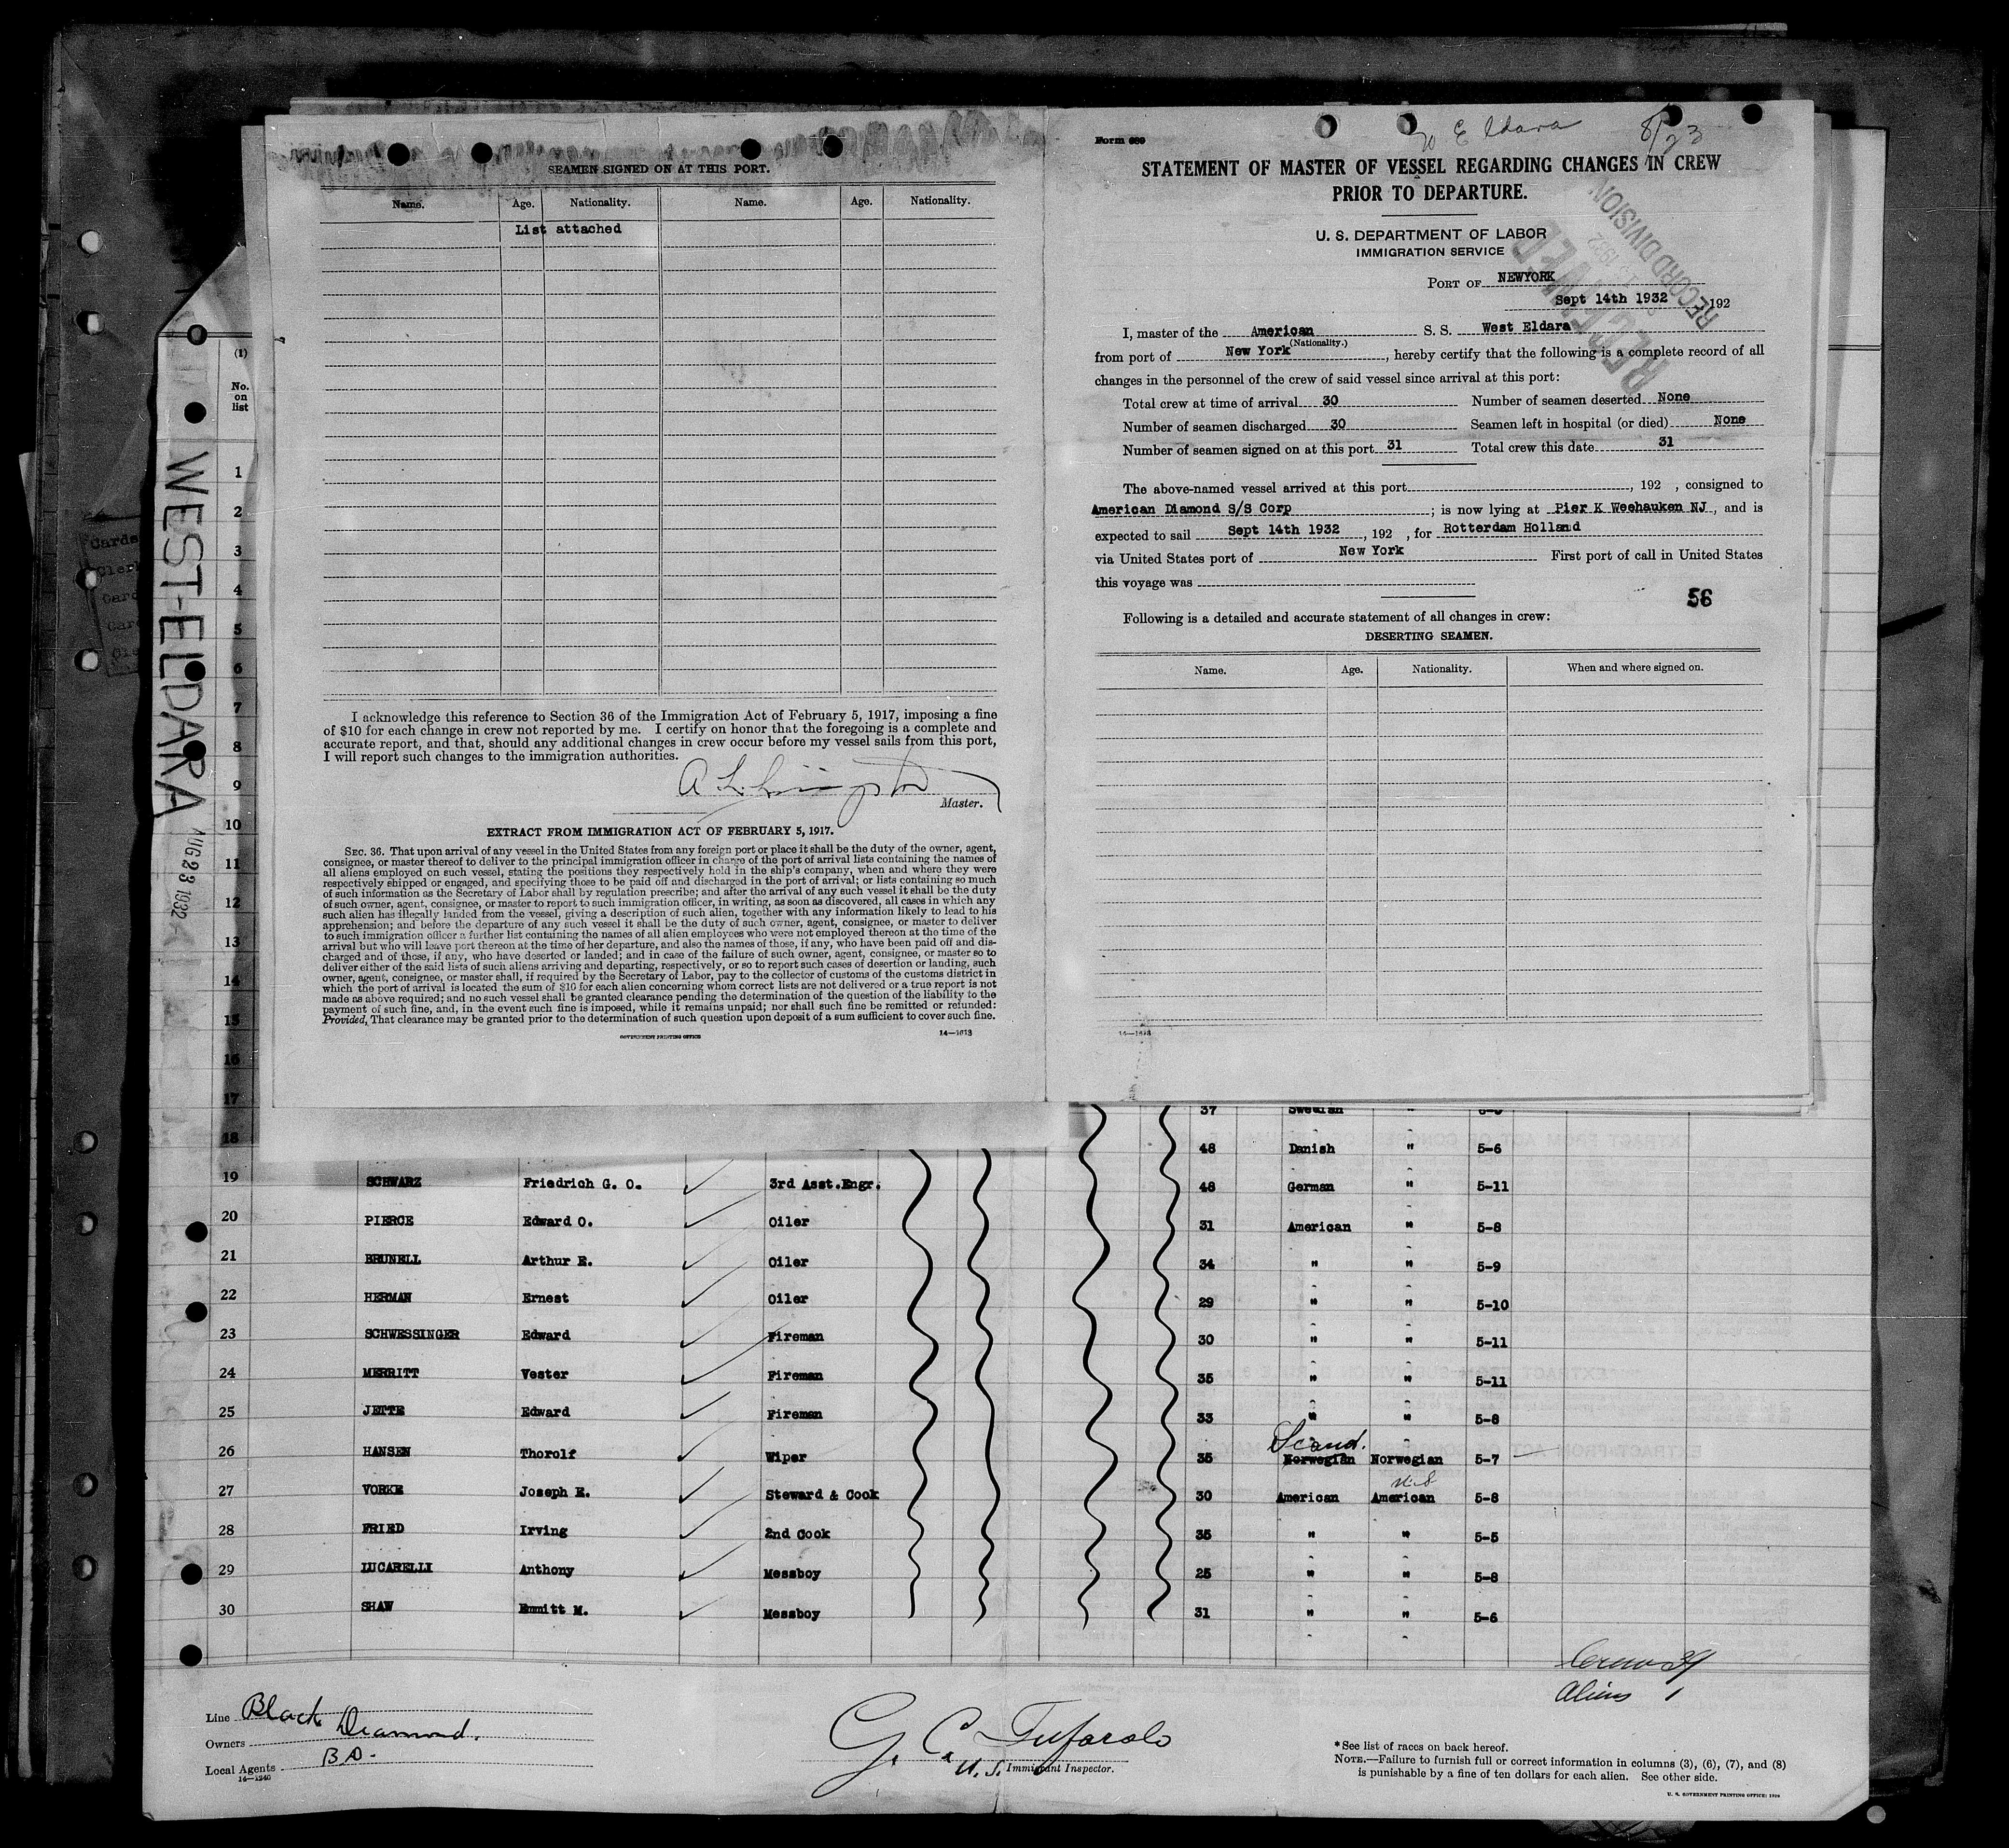 SEAMEN SIGNED ON AT THIS PORT.
Name. Age. Nationality. Name. Age. Nationality.
List attached
I acknowledge this reference to Section 36 of the Immigration Act of February 5, 1917, imposing a fine
of $10 for each change in crew not reported by me. I certify on honor that the foregoing is a complete and
accurate report, and that, should any additional changes in crew occur before my vessel sails from this port,
I will report such changes to the immigration authorities.
Master.
EXTRACT FROM IMMIGRATION ACT OF FEBRUARY 5, 1917.
SEC. 36. That upon arrival of any vessel in the United States from any foreign port or place it shall be the duty of the owner, agent,
consignee, or master thereof to deliver to the principal immigration officer in charge of the port of arrival lists containing the names of
all aliens employed on such vessel, stating the positions they respectively hold in the ship's company, when and where they were
respectively shipped or engaged, and specifying those to be paid off and discharged in the port of arrival; or lists containing so much
of such information as the Secretary of Labor shall by regulation prescribe; and after the arrival of any such vessel it shall be the duty
of such owner, agent, consignee, or master to report to such immigration officer, in writing, as soon as discovered, all cases in which any
such alien has illegally landed from the vessel, giving a description of such alien, together with any information likely to lead to his
apprehension; and before the departure of any such vessel it shall be the duty of such owner, agent, consignee, or master to deliver
to such immigration officer a further list containing the names of all alien employees who were not employed thereon at the time of the
arrival but who will leave port thereon at the time of her departure, and also the names of those, if any, who have been paid off and dis-
charged and of those, if any, who have deserted or landed; and in case of the failure of such owner, agent, consignee, or master so to
deliver either of the said lists of such aliens arriving and departing, respectively, or so to report such cases of desertion or landing, such
owner, agent, consignee, or master shall, if required by the Secretary of Labor, pay to the collector of customs of the customs district in
which the port of arrival is located the sum of $10 for each alien concerning whom correct lists are not delivered or a true report is not
made as above required; and no such vessel shall be granted clearance pending the determination of the question of the liability to the
payment of such fine, and, in the event such fine is imposed, while it remains unpaid; nor shall such fine be remitted or refunded:
Provided, That clearance may be granted prior to the determination of such question upon deposit of a sum sufficient to cover such fine.
GOVERNMENT PRINTING OFFICE 14—1613
Form 680 W Eldara 8/23
STATEMENT OF MASTER OF VESSEL REGARDING CHANGES IN CREW
PRIOR TO DEPARTURE.
U. S. DEPARTMENT OF LABOR
IMMIGRATION SERVICE
RECEIVED
1932
RECORD DIVISION
PORT OF NEWYORK
Sept 14th 1932 192
I, master of the American S. S. West Eldara
(Nationality.)
from port of New York, hereby certify that the following is a complete record of all
changes in the personnel of the crew of said vessel since arrival at this port:
Total crew at time of arrival 30 Number of seamen deserted None
Number of seamen discharged 30 Seamen left in hospital (or died) None
Number of seamen signed on at this port 31 Total crew this date 31
The above-named vessel arrived at this port , 192 , consigned to
American Diamond S/S Corp ; is now lying at Pier K Weehauken NJ , and is
expected to sail Sept 14th 1932 , 192 , for Rotterdam Holland
via United States port of New York First port of call in United States
this voyage was
56
Following is a detailed and accurate statement of all changes in crew:
DESERTING SEAMEN.
Name. Age. Nationality. When and where signed on.
14—1613
WEST-ELDARA
AUG 23 1932
(1)
No.
on
list
1
2
3
4
5
6
7
8
9
10
11
12
13
14
15
16
17 37 Swedish
18 48 Danish " 5-6
19 SCHWARZ Friedrich G. O. 3rd Asst.Engr. 48 German " 5-11
20 PIERCE Edward O. Oiler 31 American " 5-8
21 BRUNELL Arthur E. Oiler 34 " " 5-9
22 HERMAN Ernest Oiler 29 " " 5-10
23 SCHWESSINGER Edward Fireman 30 " " 5-11
24 MERRITT Vester Fireman 35 " " 5-11
25 JETTE Edward Fireman 33 " " 5-8
Scand.
26 HANSEN Thorolf Wiper 35 Norwegian Norwegian 5-7
27 VORKE Joseph E. Steward & Cook 30 American American 5-8
28 FRIED Irving 2nd Cook 35 " " 5-5
29 LUCARELLI Anthony Messboy 25 " " 5-8
30 SHAW Emmitt M. Messboy 31 " " 5-6
Aliens 1
Line Black Diamond.
Owners
Local Agents B D.
14—1240
G. C. Tufarolo
U. S. Immigrant Inspector.
*See list of races on back hereof.
NOTE.—Failure to furnish full or correct information in columns (3), (6), (7), and (8)
is punishable by a fine of ten dollars for each alien. See other side.